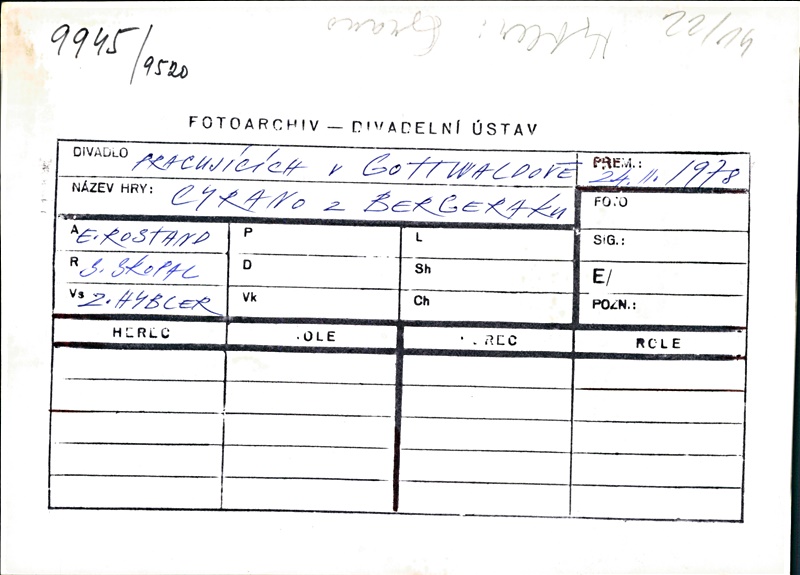 9945/9520
Hybler: Cyrano
FOTOARCHIV — DIVADELNÍ ÚSTAV
DIVADLO PRACUJÍCÍCH V GOTTWALDOVĚ PREM.: 24. 11. 1978
NÁZEV HRY: CYRANO z BERGERAKU FOTO
A E. ROSTAND P L SIG.:
R S. SKOPAL D Sh E/
Vs Z. HYBLER Vk Ch POZN.:
HEREC ROLE HEREC ROLE